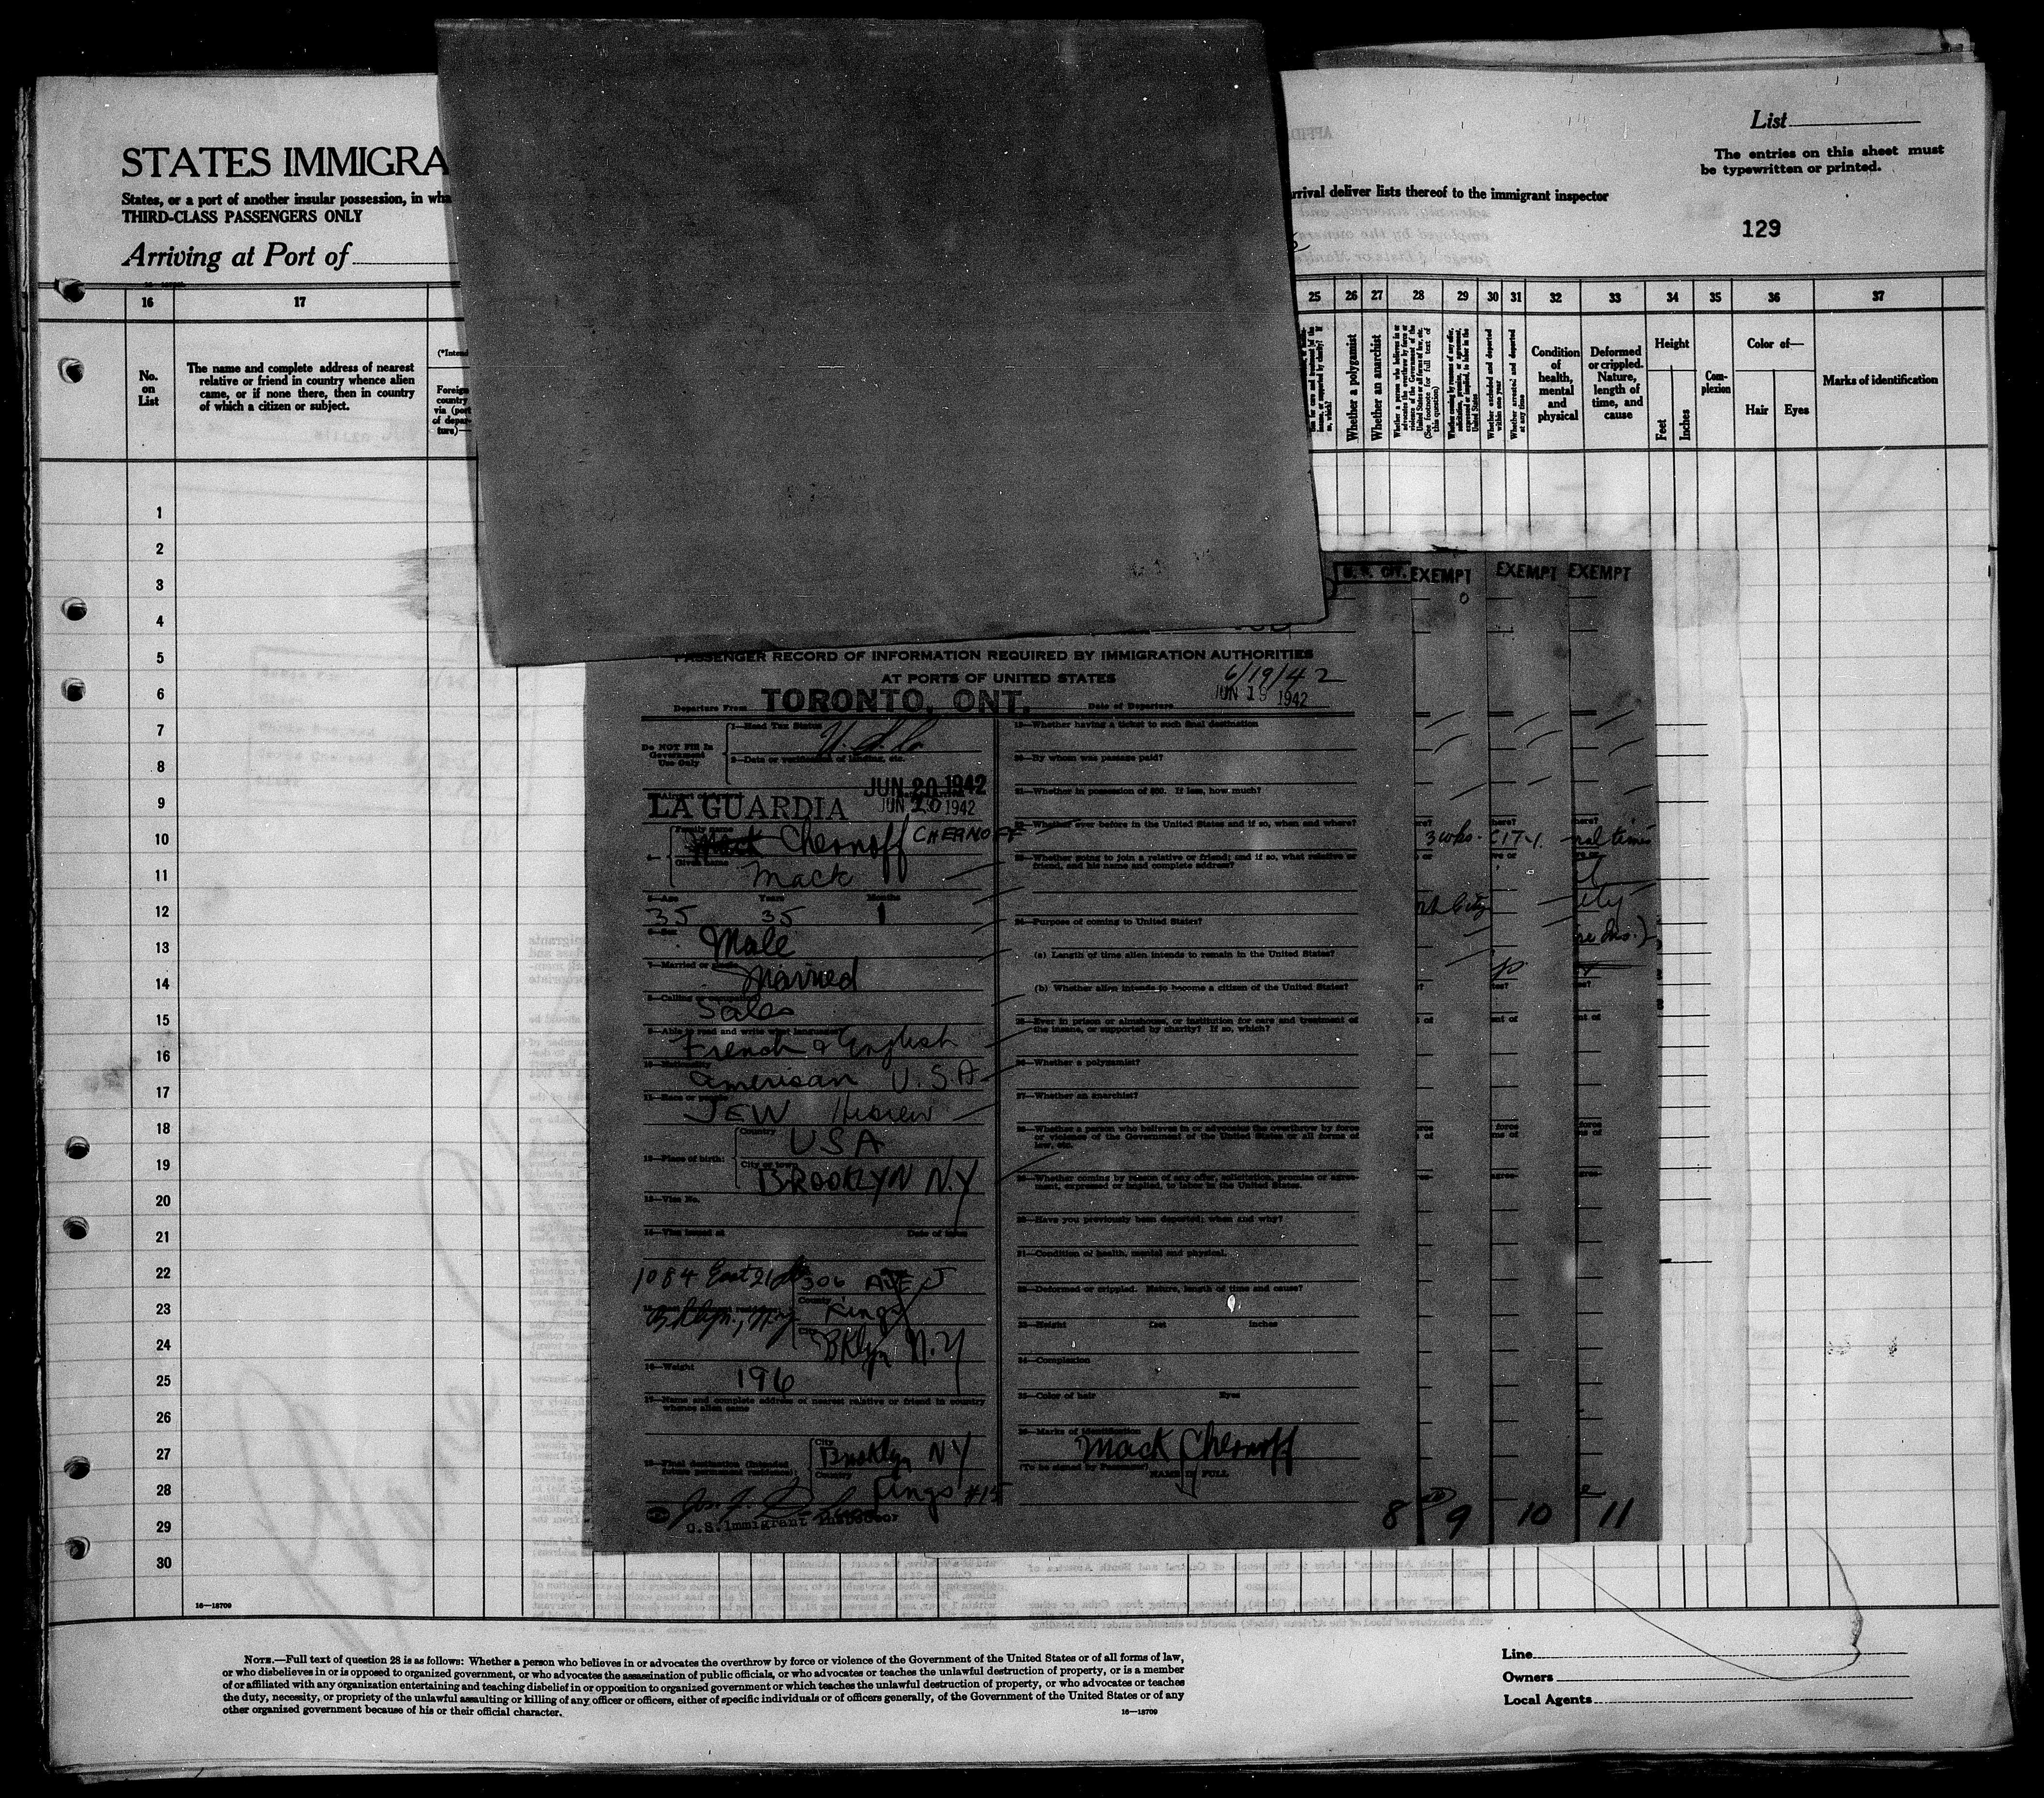 List
STATES IMMIGRA
The entries on this sheet must
be typewritten or printed.
States, or a part of another insular possession, in wha
rrival deliver lists thereof to the immigrant inspector
THIRD-CLASS PASSENGERS ONLY
129
Arriving at Port of
16 17 25 26 27 28 29 30 31 32 33 34 35 36 37
No.
on
List
The name and complete address of nearest
relative or friend in country whence alien
came, or if none there, then in country
of which a citizen or subject.
(*Intend
Foreign
country
via (port
of depar-
ture)—
Whether a polygamist
Whether an anarchist
Whether a person who believes in or
advocates the overthrow by force or
violence of the Government of the
United States or all forms of law, etc.
(See footnote for full text of
this question)
Whether coming by reason of any offer,
solicitation, promise, or agreement,
expressed or implied, to labor in the
United States
Whether excluded and deported
within one year
Whether arrested and deported
at any time
Condition
of
health,
mental
and
physical
Deformed
or crippled.
Nature,
length of
time, and
cause
Height
Feet
Inches
Com-
plexion
Color of—
Hair
Eyes
Marks of identification
1
2
3
4
5
6
7
8
9
10
11
12
13
14
15
16
17
18
19
20
21
22
23
24
25
26
27
28
29
30
U. S. CIT. EXEMPT EXEMPT EXEMPT
PASSENGER RECORD OF INFORMATION REQUIRED BY IMMIGRATION AUTHORITIES
AT PORTS OF UNITED STATES
6/19/42
Departure From TORONTO, ONT. Date of Departure JUN 19 1942
Do NOT Fill In
Government
Use Only
1—Head Tax Status
2—Date or verification of landing, etc.
JUN 20 1942
LA GUARDIA JUN 20 1942
Family name
Mack Chernoff CHERNOFF
4—
Given name
Mack
5—Age Years Months
35 35 1
6—Sex
Male
7—Married or single
Married
8—Calling or occupation
Sales
9—Able to read and write what language?
French & English
10—Nationality
American U.S.A
11—Race or people
JEW Hebrew
12—Place of birth:
Country
USA
City or town
BROOKLYN N.Y
13—Visa No.
14—Visa issued at Date of Issue
1084 East 21 306 AVE J
County
Kings
Bklyn., N.Y.
City
Bklyn N.Y
16—Weight
196
17—Name and complete address of nearest relative or friend in country
whence alien came
18—Final destination (intended
future permanent residence):
City
Brooklyn NY
Country
Kings #15
U.S. Immigrant Inspector
19—Whether having a ticket to such final destination
20—By whom was passage paid?
21—Whether in possession of $50. If less, how much?
22—Whether ever before in the United States and if so, when and where?
23—Whether going to join a relative or friend; and if so, what relative or
friend, and his name and complete address?
24—Purpose of coming to United States?
(a) Length of time alien intends to remain in the United States?
(b) Whether alien intends to become a citizen of the United States?
25—Ever in prison or almshouse, or institution for care and treatment of
the insane, or supported by charity? If so, which?
26—Whether a polygamist?
27—Whether an anarchist?
28—Whether a person who believes in or advocates the overthrow by force
or violence of the Government of the United States or all forms of
law, etc.
29—Whether coming by reason of any offer, solicitation, promise or agree-
ment, expressed or implied, to labor in the United States.
30—Have you previously been deported; when and why?
31—Condition of health, mental and physical.
32—Deformed or crippled. Nature, length of time and cause?
33—Height feet inches
34—Complexion
35—Color of hair Eyes
36—Marks of identification
Mack Chernoff
(To be signed by Passenger) NAME IN FULL
3 wks. CITY. ral times
8 9 10 11
16—18709
NOTE.—Full text of question 28 is as follows: Whether a person who believes in or advocates the overthrow by force or violence of the Government of the United States or of all forms of law,
or who disbelieves in or is opposed to organized government, or who advocates the assassination of public officials, or who advocates or teaches the unlawful destruction of property, or is a member
of or affiliated with any organization entertaining and teaching disbelief in or opposition to organized government or which teaches the unlawful destruction of property, or who advocates or teaches
the duty, necessity, or propriety of the unlawful assaulting or killing of any officer or officers, either of specific individuals or of officers generally, of the Government of the United States or of any
other organized government because of his or their official character.
16—18709
Line
Owners
Local Agents